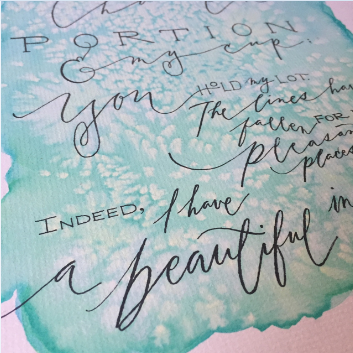 PORTION
& my cup;
you HOLD my LOT.
The lines have
fallen FOR
pleasant
places
INDEED, I have
a beautiful in